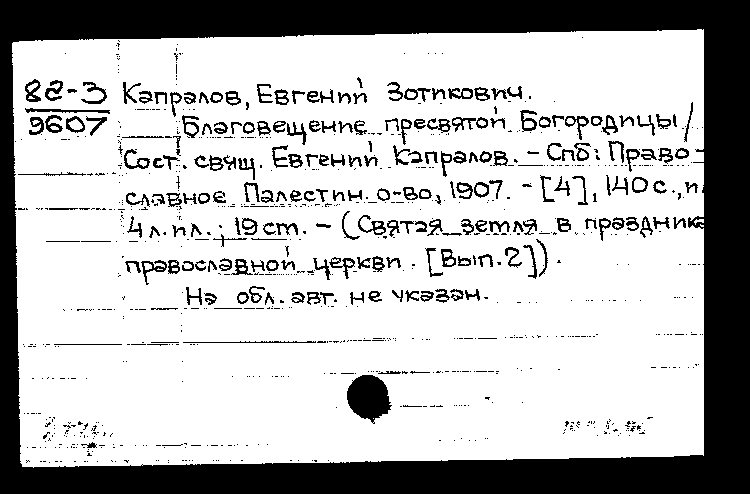 82-3 Капралов, Евгений Зотикович.
9607 Благовещение пресвятой Богородицы /
Сост. свящ. Евгений Капралов. - Спб: Право-
славное Палестин. о-во, 1907. - [4], 140 с.,
4 л. пл.; 19 см. - (Святая земля в праздника
православной церкви. [Вып. 2]).
На обл. авт. не указан.